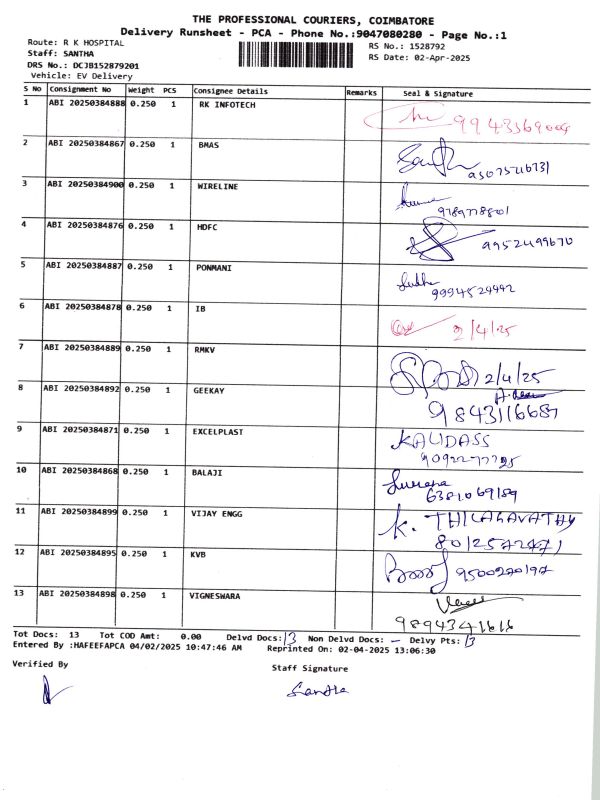 THE PROFESSIONAL COURIERS, COIMBATORE
Delivery Runsheet - PCA - Phone No.:9047080280 - Page No.:1
Route: R K HOSPITAL
RS No.: 1528792
Staff: SANTHA
RS Date: 02-Apr-2025
DRS No.: DCJB152879201
Vehicle: EV Delivery
S No Consignment No Weight PCS Consignee Details Remarks Seal & Signature
1 ABI 20250384888 0.250 1 RK INFOTECH
2 ABI 20250384867 0.250 1 BMAS
3 ABI 20250384900 0.250 1 WIRELINE
4 ABI 20250384876 0.250 1 HDFC 9952499670
5 ABI 20250384887 0.250 1 PONMANI 9994524442
6 ABI 20250384878 0.250 1 IB 2/4/25
7 ABI 20250384889 0.250 1 RMKV 2/4/25
8 ABI 20250384892 0.250 1 GEEKAY 9843116687
9 ABI 20250384871 0.250 1 EXCELPLAST KALIDASS
10 ABI 20250384868 0.250 1 BALAJI 6381069189
11 ABI 20250384899 0.250 1 VIJAY ENGG K. THILAGAVATHY
8012572471
12 ABI 20250384895 0.250 1 KVB 9500270197
13 ABI 20250384898 0.250 1 VIGNESWARA 9894341616
Tot Docs: 13 Tot COD Amt: 0.00 Delvd Docs: 13 Non Delvd Docs: — Delvy Pts: 13
Entered By :HAFEEFAPCA 04/02/2025 10:47:46 AM Reprinted On: 02-04-2025 13:06:30
Verified By
Staff Signature
Santha